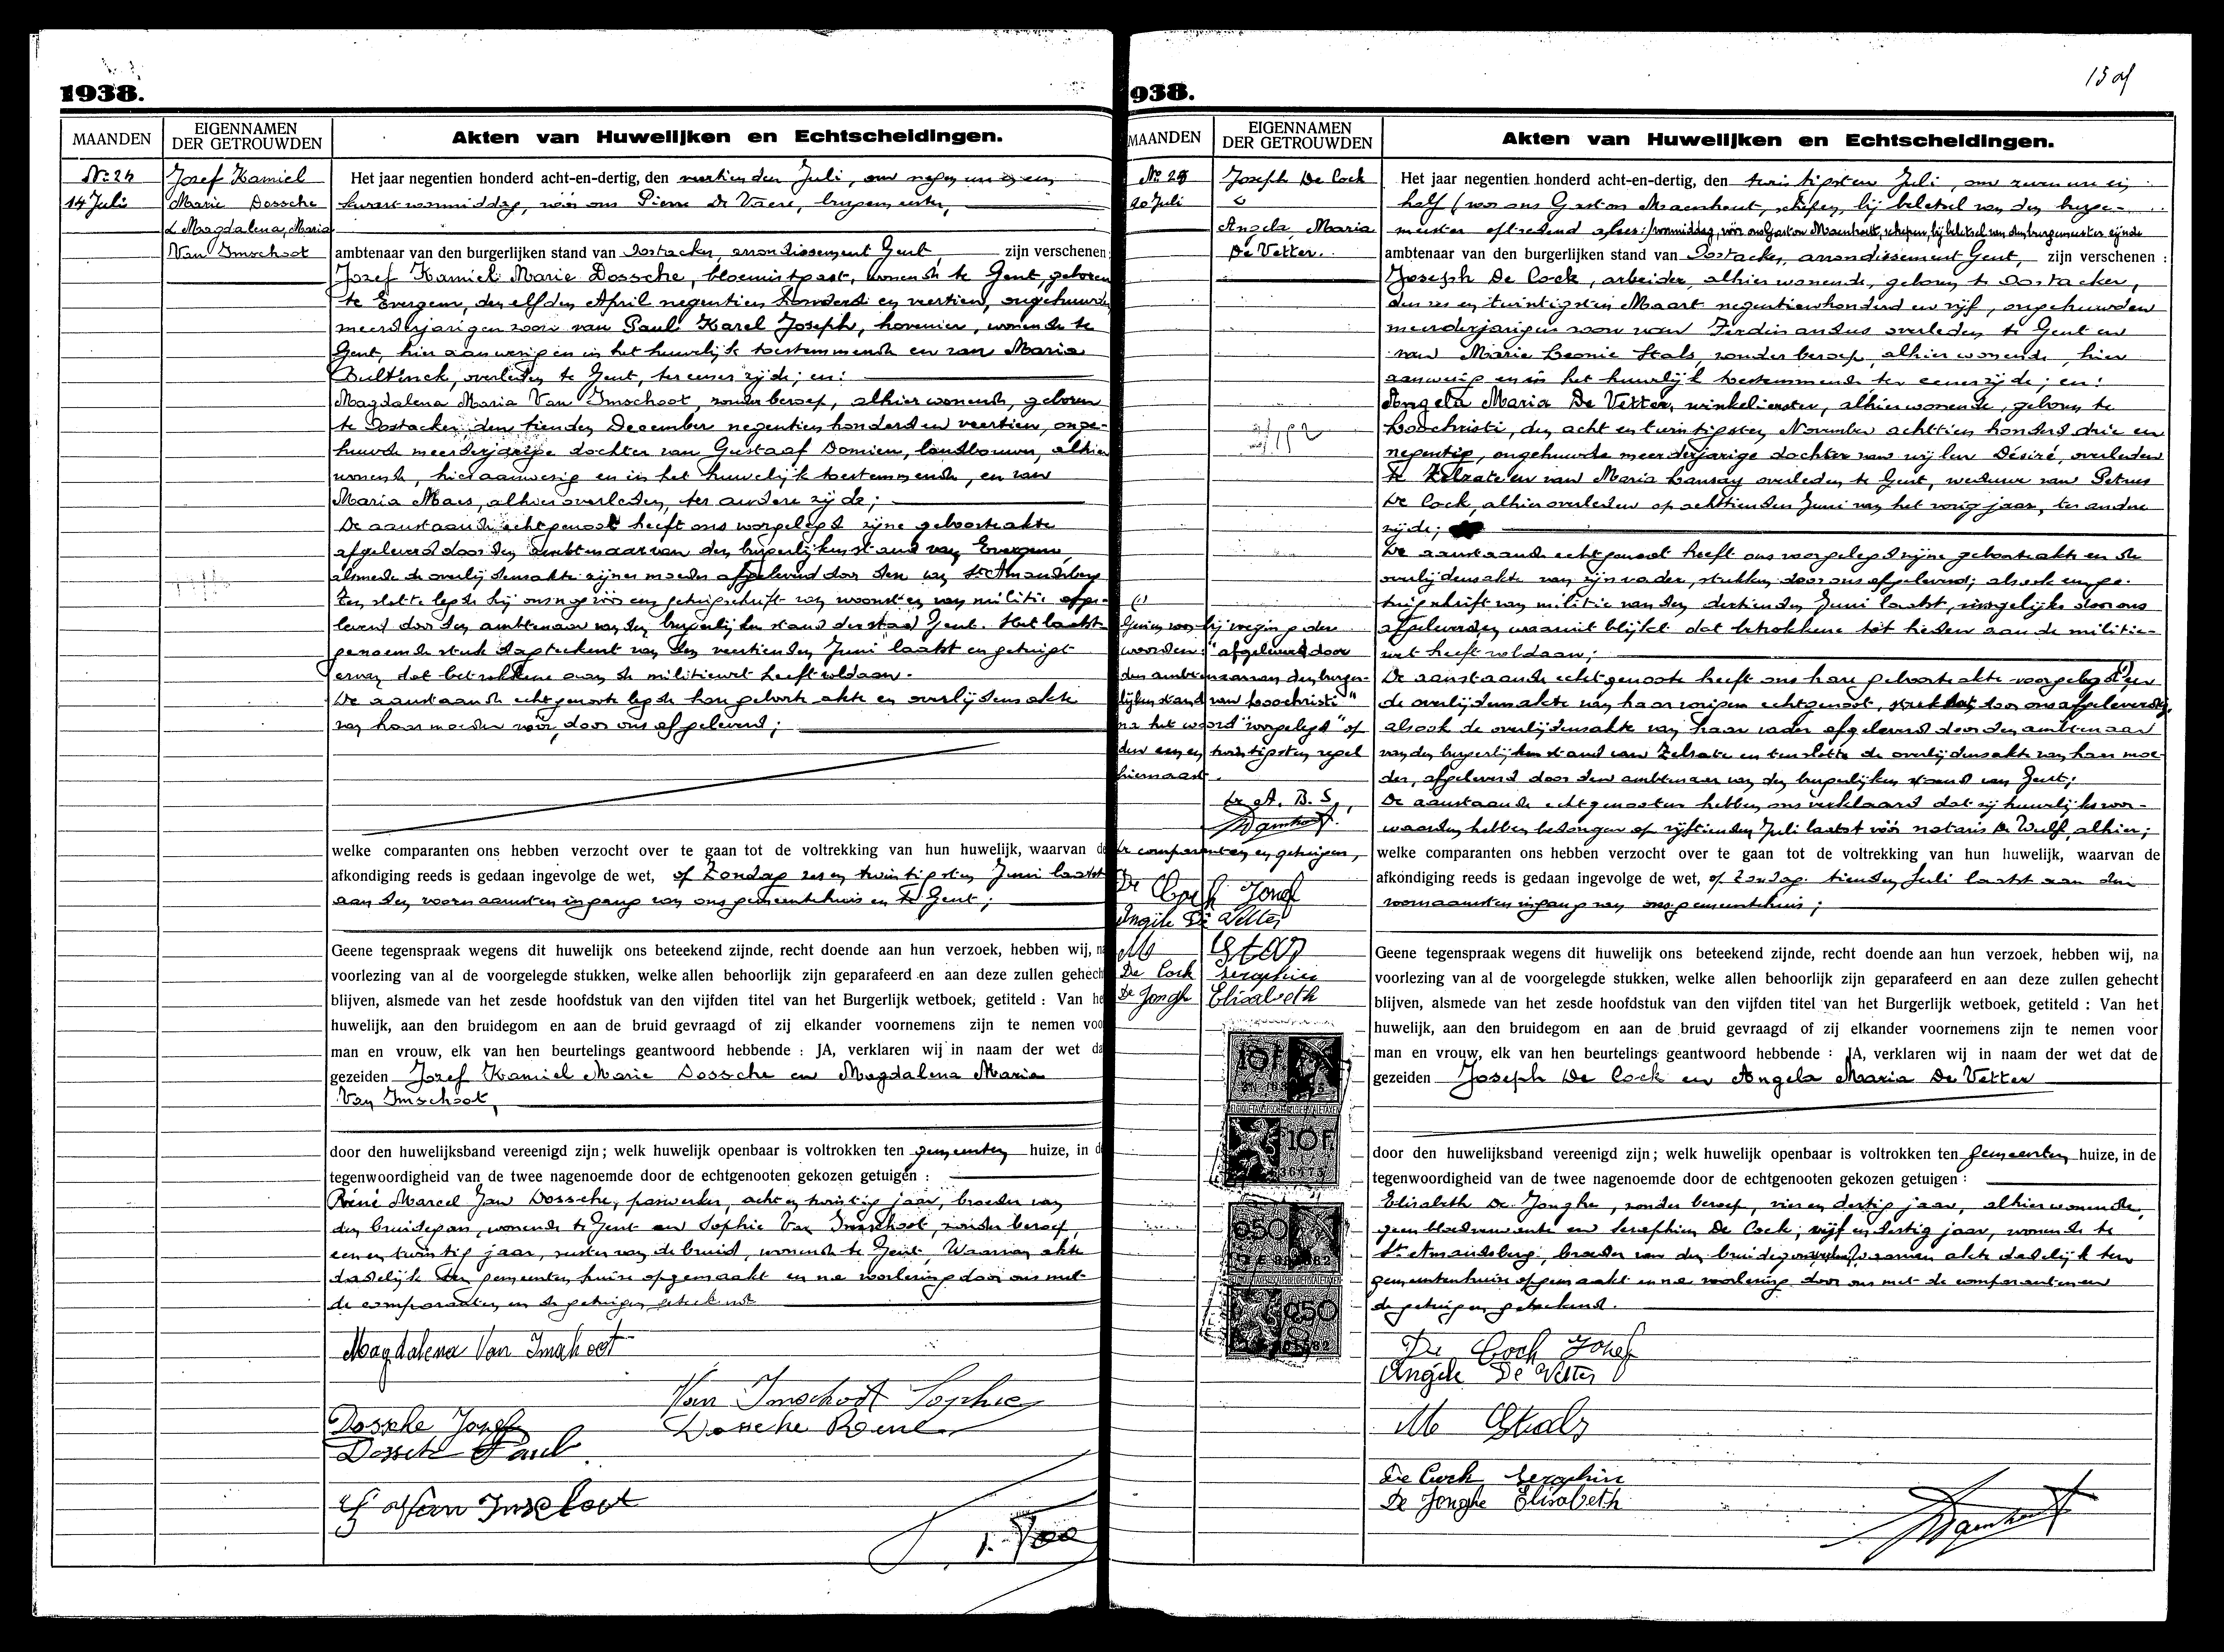 1938.
MAANDEN
EIGENNAMEN
DER GETROUWDEN
Akten van Huwelijken en Echtscheidingen.
Nr. 24
14 Juli
Josef Kamiel
Marie Dossche
& Magdalena, Maria
Van Imschoot
Het jaar negentien honderd acht-en-dertig, den veertienden Juli, om negen uur en een
kwart voormiddag, vóór ons Pierre De Vaere, burgemeester,
ambtenaar van den burgerlijken stand van Oostacker, arrondissement Gent, zijn verschenen:
Jozef Kamiel Marie Dossche, bloemistgast, wonende te Gent, geboren
te Evergem, den elfden April negentien honderd en veertien, ongehuwde
meerderjarigen zoon van Paul Karel Joseph, hovenier, wonende te
Gent, hier aanwezig en in het huwelijk toestemmende en van Maria
Bultinck, overleden te Gent, ter eener zijde; en:
Magdalena Maria Van Imschoot, zonder beroep, alhier wonende, geboren
te Oostacker den tienden December negentien honderd en veertien, onge-
huwde meerderjarige dochter van Gustaaf Domien, landbouwer, alhier
wonende, hier aanwezig en in het huwelijk toestemmende, en van
Maria Maes, alhier overleden, ter andere zijde;
De aanstaande echtgenoot heeft ons voorgelegd zijne geboorteakte
afgeleverd door den ambtenaar van den burgerlijken stand van Evergem,
alsmede de overlijdensakte zijner moeder afgeleverd door dien van St. Amandsberg
Ten slotte legde hij ons nog vóór een getuigschrift van woonst en van militie afge-
leverd door den ambtenaar van den burgerlijken stand der stad Gent. Het laatst-
genoemde stuk dagteekent van den veertienden Juni laatst en getuigt
ervan dat betrokkene aan de militiewet heeft voldaan.
De aanstaande echtgenoote legde hare geboorte akte en overlijdensakte
van haar moeder vóór, door ons afgeleverd;
welke comparanten ons hebben verzocht over te gaan tot de voltrekking van hun huwelijk, waarvan de
afkondiging reeds is gedaan ingevolge de wet, op Zondag zes en twintigsten Juni laatst
aan den voornaamsten ingang van ons gemeentehuis en te Gent;
Geene tegenspraak wegens dit huwelijk ons beteekend zijnde, recht doende aan hun verzoek, hebben wij, na
voorlezing van al de voorgelegde stukken, welke allen behoorlijk zijn geparafeerd en aan deze zullen gehech
blijven, alsmede van het zesde hoofdstuk van den vijfden titel van het Burgerlijk wetboek, getiteld : Van he
huwelijk, aan den bruidegom en aan de bruid gevraagd of zij elkander voornemens zijn te nemen voo
man en vrouw, elk van hen beurtelings geantwoord hebbende : JA, verklaren wij in naam der wet da
gezeiden Jozef Kamiel Marie Dossche en Magdalena Maria
Van Imschoot,
door den huwelijksband vereenigd zijn; welk huwelijk openbaar is voltrokken ten gemeenten huize, in d
tegenwoordigheid van de twee nagenoemde door de echtgenooten gekozen getuigen :
René Marcel Jan Dossche, paswerker, acht en twintig jaar, broeder van
den bruidegom, wonende te Gent en Sophie Van Imschoot, zonder beroep,
een en twintig jaar, zuster van de bruid, wonende te Gent, Waarvan akte
dadelijk ten gemeenten huize opgemaakt en na voorlezing door ons met
de comparanten en de getuigen geteekend
Magdalena Van Imschoot
Van Imschoot Sophie
Dossche Jozef
Dossche René
Dossche Paul.
G. Van Imschoot
938.
MAANDEN
EIGENNAMEN
DER GETROUWDEN
Akten van Huwelijken en Echtscheidingen.
Nr. 25
20 Juli
Joseph De Cock
&
Angela Maria
De Vetter.
Het jaar negentien honderd acht-en-dertig, den twintigsten Juli, om zeven uur en
half (voor ons Gaston Maenhout, schepen, bij beletsel van den burge-
meester optredend als:) voormiddag, vóór ons Gaston Maenhout, schepen, bij beletsel van den burgemeester zijnde
ambtenaar van den burgerlijken stand van Oostacker, arrondissement Gent, zijn verschenen :
Joseph De Cock, arbeider, alhier wonende, geboren te Oostacker,
den zes en twintigsten Maart negentienhonderd en vijf, ongehuwden
meerderjarigen zoon van Ferdinandus overleden te Gent en
van Marie Leonie Stals, zonder beroep, alhier wonende, hier
aanwezig en in het huwelijk toestemmende ter eener zijde; en:
Angela Maria De Vetter, winkelierster, alhier wonende, geboren te
Loochristi, den acht en twintigsten November achttien honderd drie en
negentig, ongehuwde meerderjarige dochter van wijlen Désiré, overleden
te Zelzate en van Maria Lansay overleden te Gent, weduwe van Petrus
De Cock, alhier overleden op achttienden Juni van het vorig jaar, ter andere
zijde;
De aanstaande echtgenoot heeft ons voorgelegd zijne geboorteakte en de
overlijdensakte van zijn vader, stukken door ons afgeleverd; alsook een ge-
tuigschrift van militie van den dertienden Juni laatst, insgelijks door ons
afgeleverd, en waaruit blijkt dat betrokkene tot heden aan de militie-
wet heeft voldaan;
De aanstaande echtgenoote heeft ons hare geboorte akte voorgelegd (1) en
de overlijdensakte van haar vorigen echtgenoot, door ons afgeleverd,
alsook de overlijdensakte van haar vader afgeleverd door den ambtenaar
van den burgerlijken stand van Zelzate en ten slotte de overlijdensakte van haar moe-
der, afgeleverd door den ambtenaar van den burgerlijken stand van Gent;
De aanstaande echtgenooten hebben ons verklaard dat zij huwelijksvoor-
waarden hebben bedongen op vijftienden Juli laatst vóór notaris De Wulf, alhier;
(1)
Gezien voor bijvoeging der
woorden: "afgeleverd door
den ambtenaar van den burger-
lijken stand van Loochristi"
na het woord "voorgelegd" op
den een en twintigsten regel
hiernaast.
De A. B. S.,
Maenhout.
De comparanten en getuigen,
De Cock Josef
Angèle De Vetter
M Stals
De Cock Seraphin
De Jonghe Elisabeth
10F
10F
welke comparanten ons hebben verzocht over te gaan tot de voltrekking van hun huwelijk, waarvan de
afkondiging reeds is gedaan ingevolge de wet, op Zondag tienden Juli laatst aan den
voornaamsten ingang van ons gemeentehuis;
Geene tegenspraak wegens dit huwelijk ons beteekend zijnde, recht doende aan hun verzoek, hebben wij, na
voorlezing van al de voorgelegde stukken, welke allen behoorlijk zijn geparafeerd en aan deze zullen gehecht
blijven, alsmede van het zesde hoofdstuk van den vijfden titel van het Burgerlijk wetboek, getiteld : Van het
huwelijk, aan den bruidegom en aan de bruid gevraagd of zij elkander voornemens zijn te nemen voor
man en vrouw, elk van hen beurtelings geantwoord hebbende : JA, verklaren wij in naam der wet dat de
gezeiden Joseph De Cock en Angela Maria De Vetter
door den huwelijksband vereenigd zijn; welk huwelijk openbaar is voltrokken ten gemeenten huize, in de
tegenwoordigheid van de twee nagenoemde door de echtgenooten gekozen getuigen :
Elisabeth De Jonghe, zonder beroep, vier en dertig jaar, alhier wonende,
geen bloedverwante en Seraphien De Cock, vijf en dertig jaar, wonende te
St Amandsberg, broeder van den bruidegom, waarvan akte dadelijk ten
gemeentenhuize opgemaakt en na voorlezing door ons met de comparanten en
de getuigen geteekend.
De Cock Josef
Angèle De Vetter
M Stals
De Cock Seraphin
De Jonghe Elisabeth
Maenhout